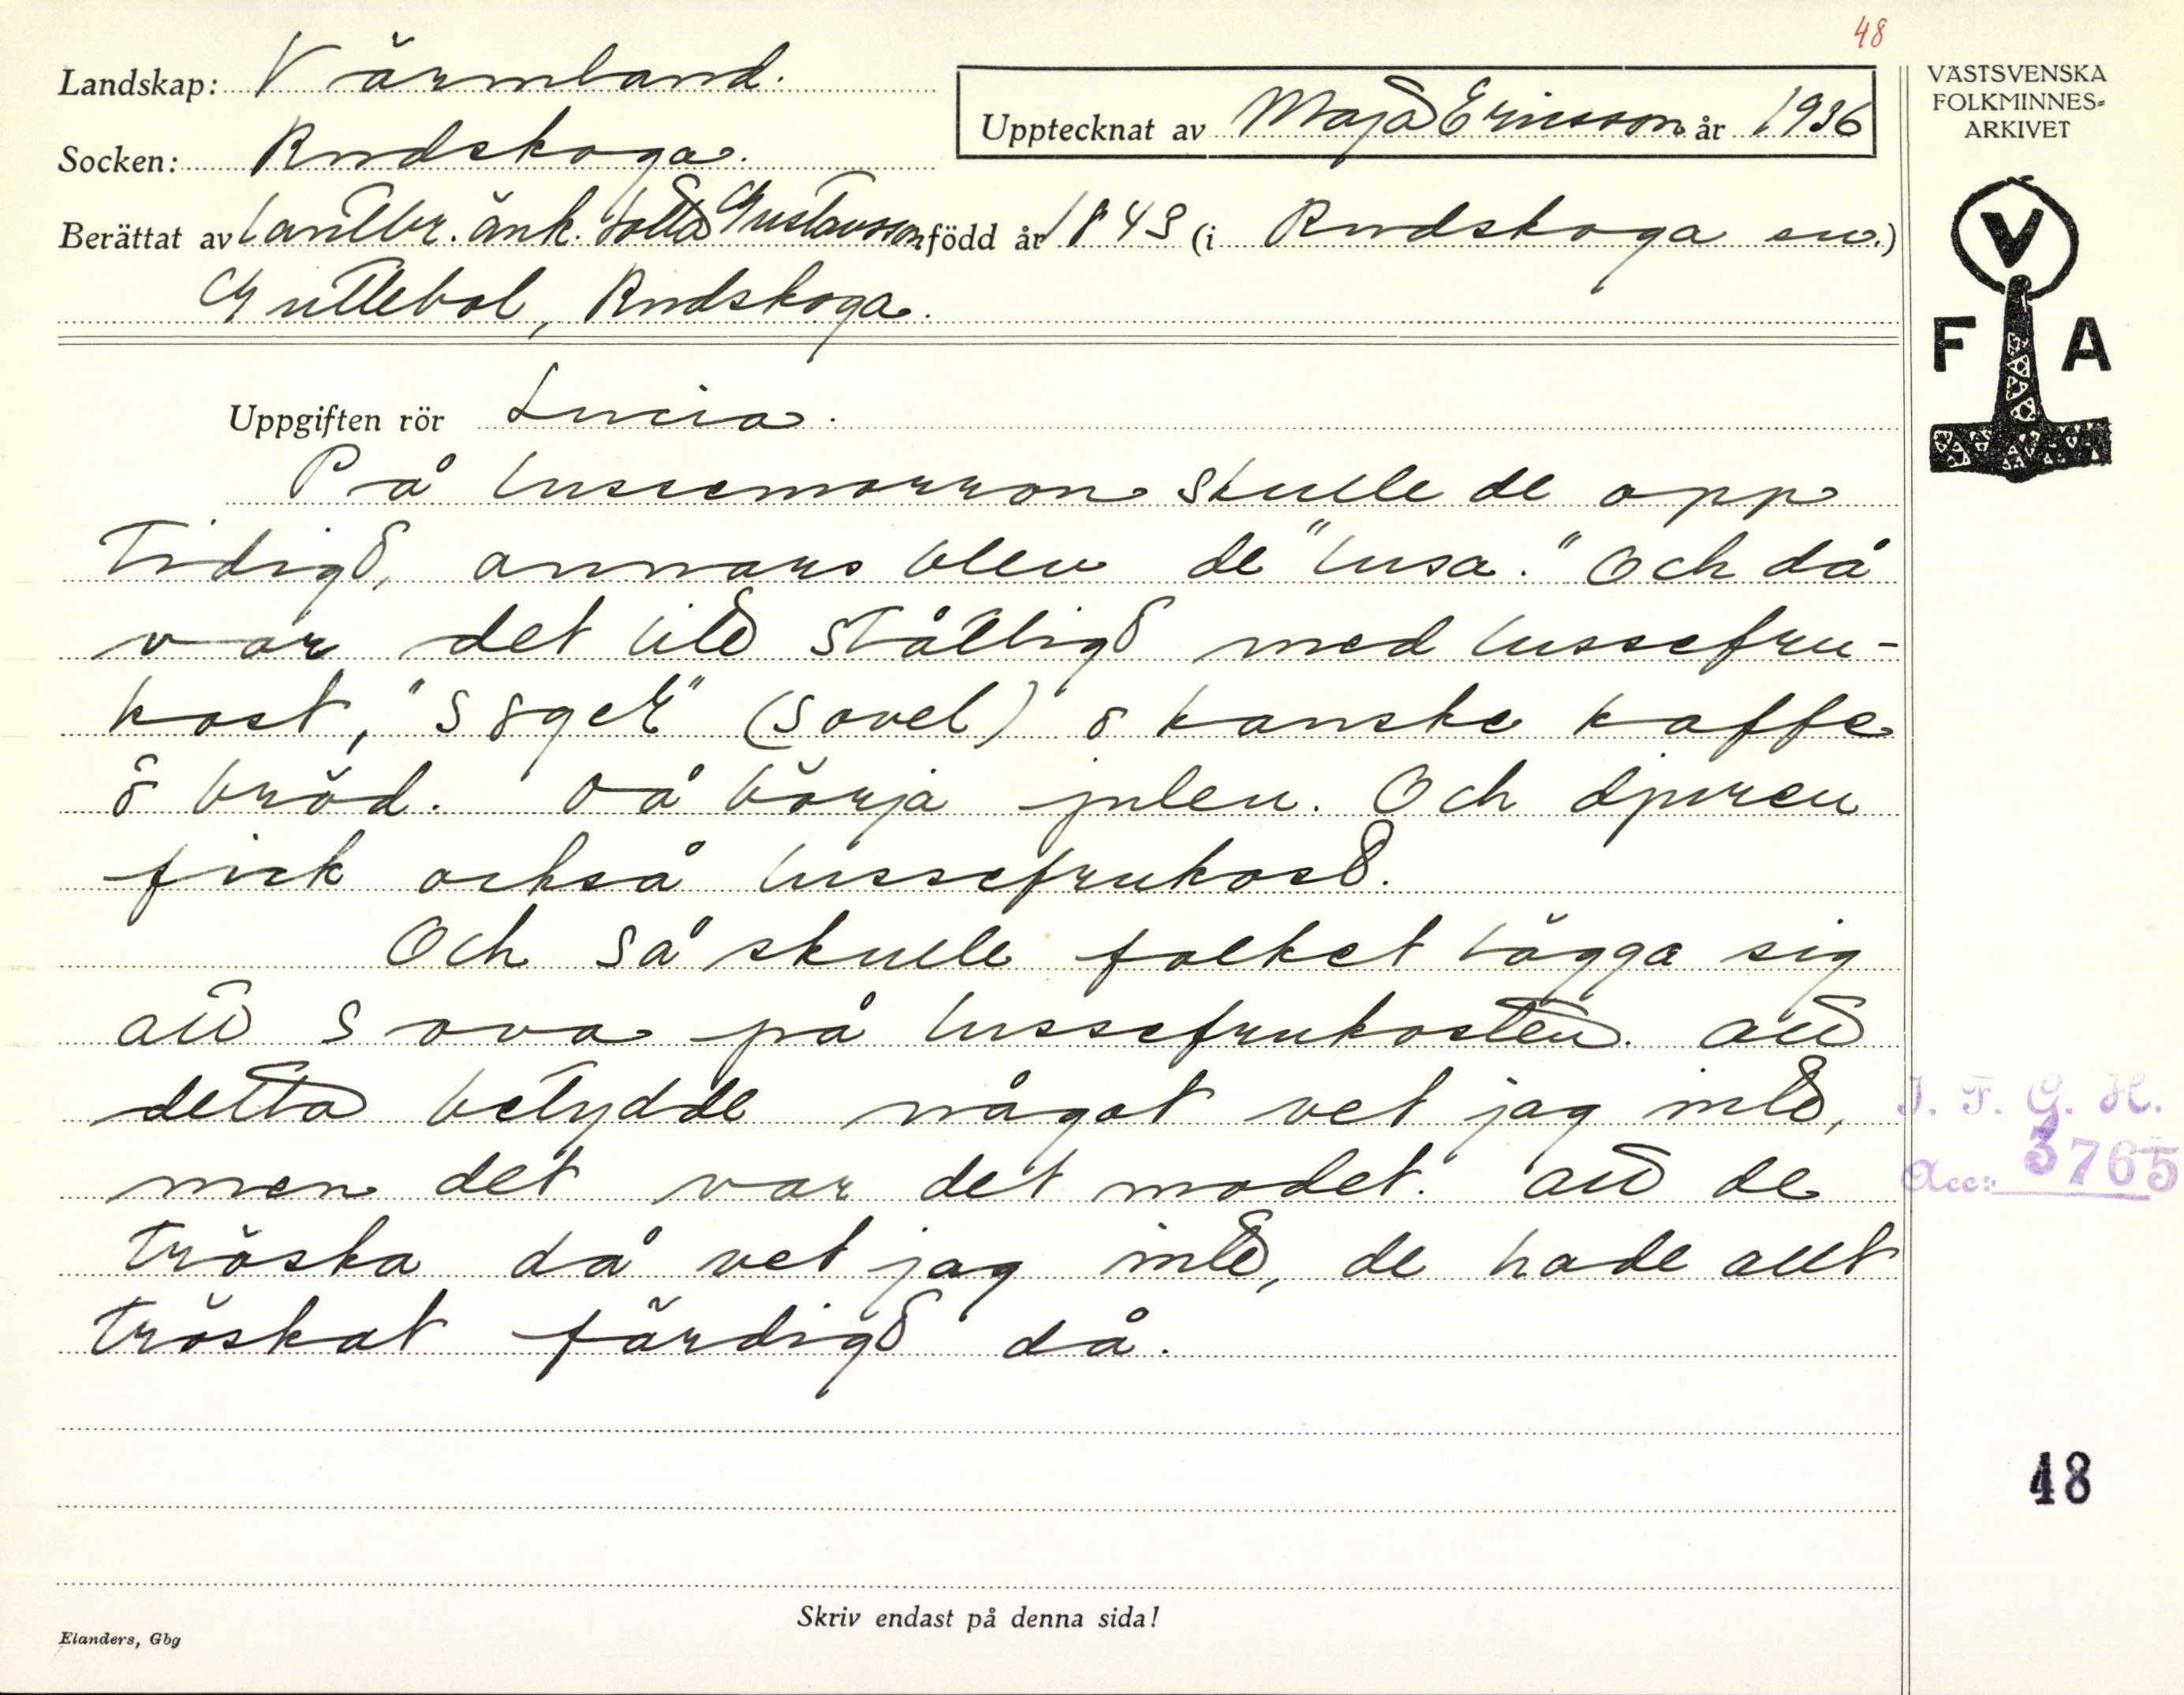 48
Landskap: Värmland.
Socken: Rudskoga.
Upptecknat av Maja Ericsson år 1936
VÄSTSVENSKA
FOLKMINNES-
ARKIVET
Berättat av lantbr. änk. Lotta Gustavsson född år 1849 (i Rudskoga sn.)
Gullebol, Rudskoga.
V
F A
Uppgiften rör Lucia.
På lussemorron skulle de opp
tidigt, annars blev de "lusa." Och då
var det lite ståtligt med lussefru-
kost, "sögel" (sovel) o kanske kaffe
o bröd. Då börja julen. Och djuren
fick också lussefrukost.
Och så skulle folket lägga sig
att sova på lussefrukosten. Att
detta betydde något vet jag inte,
men det var det modet. Att de
tröska då vet jag inte, de hade allt
tröskat färdigt då.
I. F. G. H.
Acc: 3765
48
Skriv endast på denna sida!
Elanders, Gbg